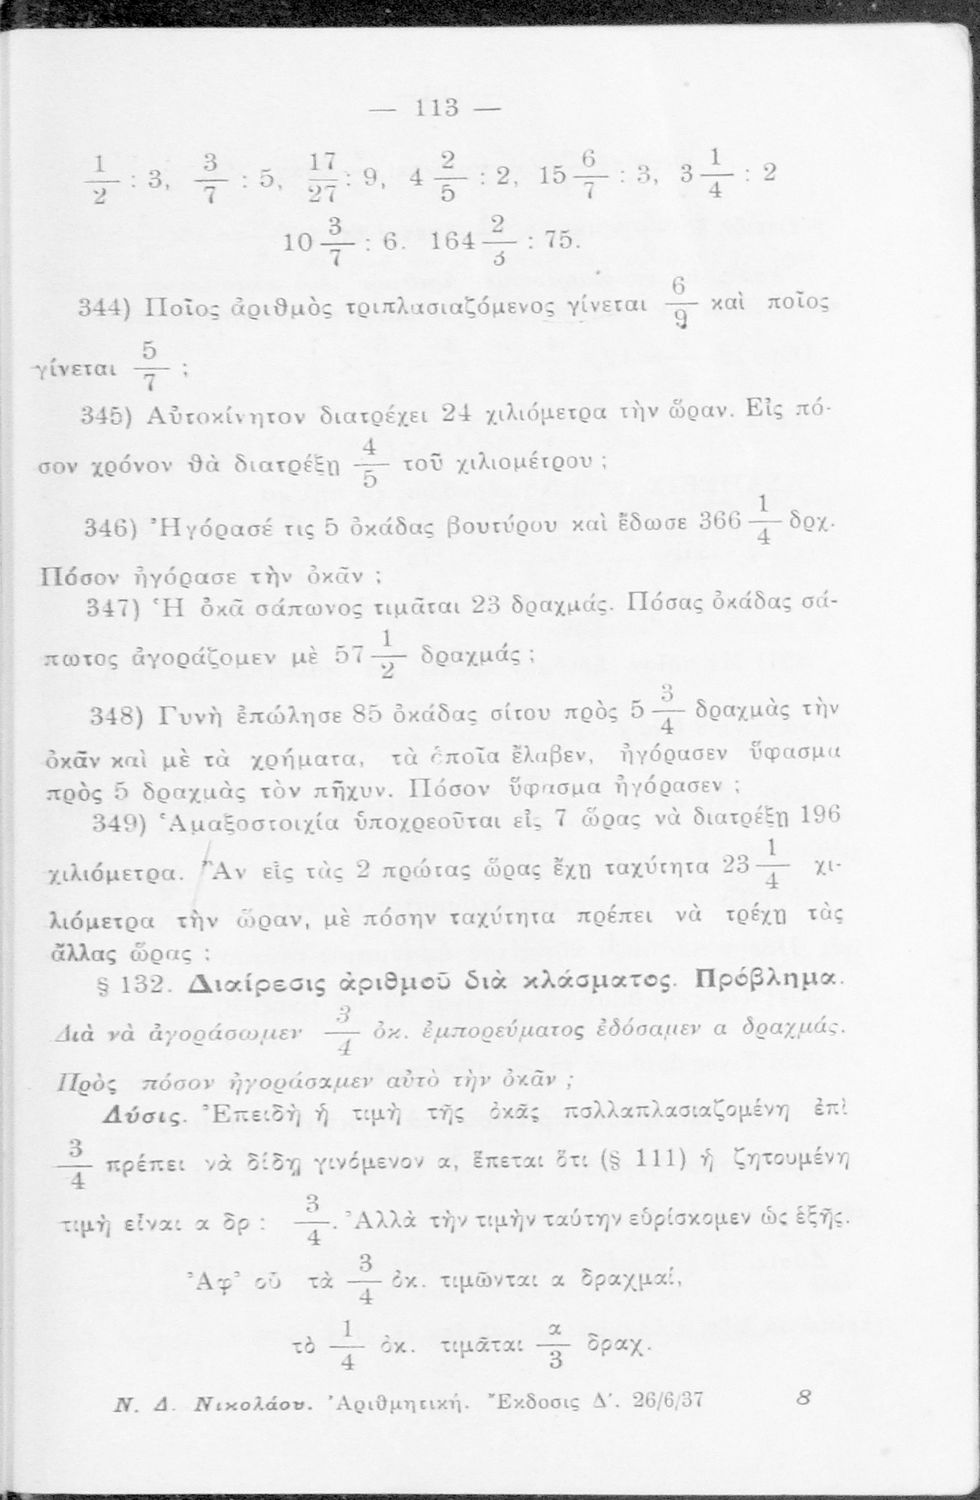 — 113 —
1/2 : 3, 3/7 : 5, 17/27 : 9, 4 2/5 : 2, 15 6/7 : 3, 3 1/4 : 2
10 3/7 : 6. 164 2/3 : 75.
344) Ποῖος ἀριθμὸς τριπλασιαζόμενος γίνεται 6/9 καὶ ποῖος
γίνεται 5/7 ;
345) Αὐτοκίνητον διατρέχει 24 χιλιόμετρα τὴν ὥραν. Εἰς πό-
σον χρόνον θὰ διατρέξῃ 4/5 τοῦ χιλιομέτρου ;
346) Ἠγόρασέ τις 5 ὀκάδας βουτύρου καὶ ἔδωσε 366 1/4 δρχ.
Πόσον ἠγόρασε τὴν ὀκᾶν ;
347) Ἡ ὀκᾶ σάπωνος τιμᾶται 23 δραχμάς. Πόσας ὀκάδας σά-
πωτος ἀγοράζομεν μὲ 57 1/2 δραχμάς ;
348) Γυνὴ ἐπώλησε 85 ὀκάδας σίτου πρὸς 5 3/4 δραχμὰς τὴν
ὀκᾶν καὶ μὲ τὰ χρήματα, τὰ ὁποῖα ἔλαβεν, ἠγόρασεν ὕφασμα
πρὸς 5 δραχμὰς τὸν πῆχυν. Πόσον ὕφασμα ἠγόρασεν ;
349) Ἁμαξοστοιχία ὑποχρεοῦται εἰς 7 ὥρας νὰ διατρέξῃ 196
χιλιόμετρα. Ἂν εἰς τὰς 2 πρώτας ὥρας ἔχῃ ταχύτητα 23 1/4 χι-
λιόμετρα τὴν ὥραν, μὲ πόσην ταχύτητα πρέπει νὰ τρέχῃ τὰς
ἄλλας ὥρας ;
§ 132. Διαίρεσις ἀριθμοῦ διὰ κλάσματος. Πρόβλημα.
Διὰ νὰ ἀγοράσωμεν 3/4 ὀκ. ἐμπορεύματος ἐδόσαμεν α δραχμάς.
Πρὸς πόσον ἠγοράσαμεν αὐτὸ τὴν ὀκᾶν ;
Λύσις. Ἐπειδὴ ἡ τιμὴ τῆς ὀκᾶς πολλαπλασιαζομένη ἐπὶ
3/4 πρέπει νὰ δίδῃ γινόμενον α, ἕπεται ὅτι (§ 111) ἡ ζητουμένη
τιμὴ εἶναι α δρ : 3/4. Ἀλλὰ τὴν τιμὴν ταύτην εὑρίσκομεν ὡς ἑξῆς.
Ἀφ' οὗ τὰ 3/4 ὀκ. τιμῶνται α δραχμαί,
τὸ 1/4 ὀκ. τιμᾶται α/3 δραχ.
Ν. Δ. Νικολάου. Ἀριθμητική. Ἔκδοσις Δ'. 26/6/37 8